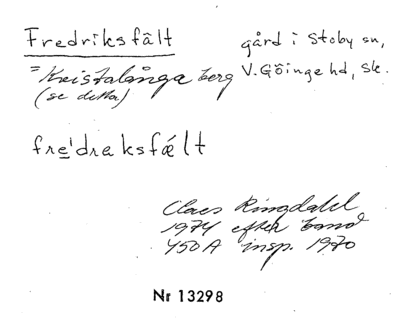 Fredriksfält
gård i Stoby sn,
V.Göinge hd, Sk.
= Kristalånga berg
(se detta)
fre̲'draksfǽlt
Claes Ringdahl
1974 efter band
450A insp. 1970
Nr 13298